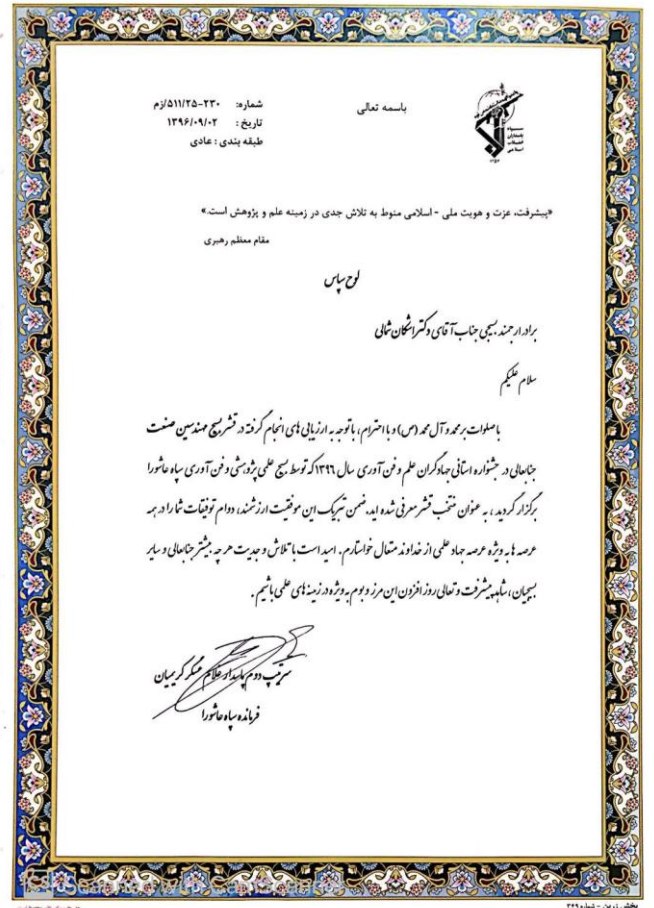 باسمه تعالی
شماره: ۲۳۰-۵۱۱/۲۵/زم
تاریخ : ۱۳۹۶/۰۹/۰۲
طبقه بندی : عادی
سپاه
پاسداران
انقلاب
اسلامی
«پیشرفت، عزت و هویت ملی - اسلامی منوط به تلاش جدی در زمینه علم و پژوهش است.»
مقام معظم رهبری
لوح سپاس
برادر ارجمند بسیجی جناب آقای دکتر اشکان شالی
سلام علیکم
با صلوات بر محمد و آل محمد (ص) و با احترام، باتوجه به ارزیابی های انجام گرفته در قشر بسیج مهندسین صنعت
جنابعالی در جشنواره استانی جهادگران علم و فن آوری سال ۱۳۹۶ که توسط بسیج علمی پژوهشی و فن آوری سپاه عاشورا
برگزار گردید، به عنوان منتخب قشر معرفی شده اید، ضمن تبریک این موفقیت ارزشمند، دوام توفیقات شما را در همه
عرصه ها به ویژه عرصه جهاد علمی از خداوند متعال خواستارم. امید است با تلاش و جدیت هر چه بیشتر جنابعالی و سایر
بسیجیان، شاهد پیشرفت و تعالی روز افزون این مرز و بوم به ویژه در زمینه های علمی باشیم.
سرتیپ دوم پاسدار کریمیان
فرمانده سپاه عاشورا
CS Scanned with CamScanner
پخش زرین - شماره ۳۴۹